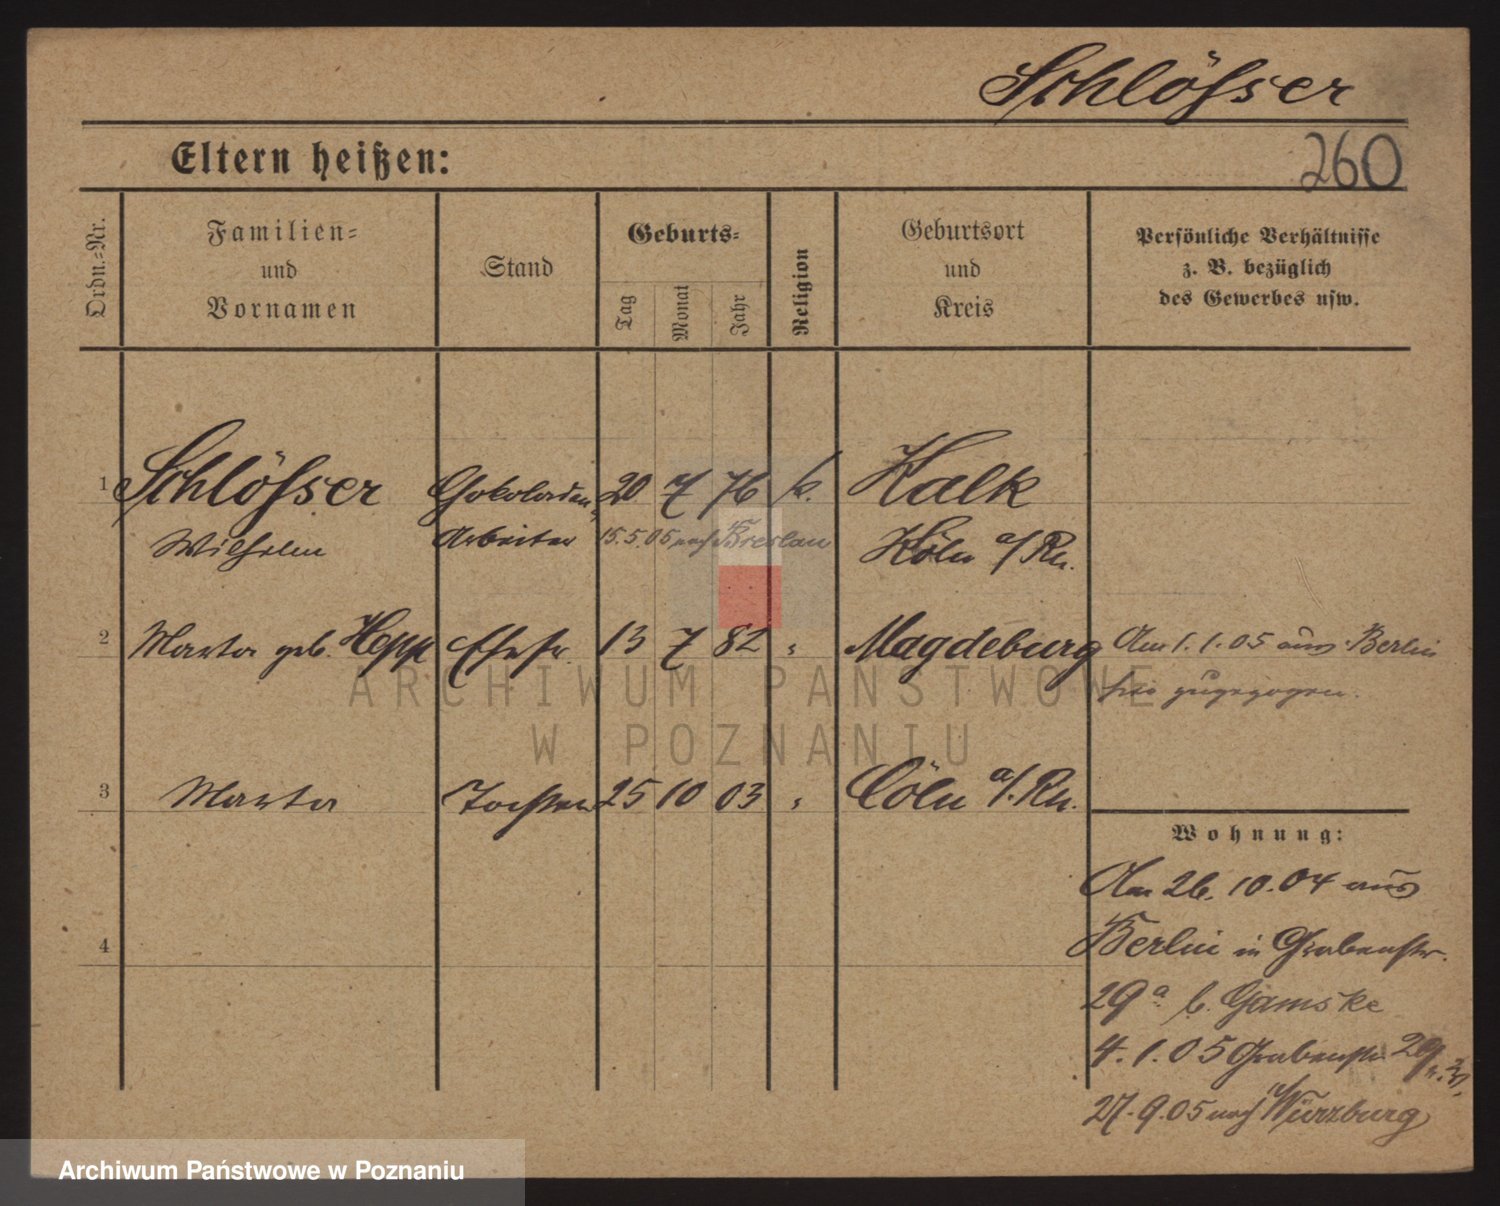 Schlösser
Eltern heißen:
260
Ordn.-Nr.
Familien-
und
Vornamen
Stand
Geburts-
Tag
Monat
Jahr
Religion
Geburtsort
und
Kreis
Persönliche Verhältnisse
z. B. bezüglich
des Gewerbes usw.
1 Schlösser Schokoladen 20 7 76 k. Kalk
Wilhelm Arbeiter 15.5.05 nach Breslau Köln a/Rh.
2 Marta geb. Hepp Ehefr. 13 7 82 " Magdeburg Am 1.1.05 aus Berlin
zugezogen.
3 Marta Tochter 25 10 03 " Cöln a/.Rh.
Wohnung:
Am 26.10.04 aus
4 Berlin in Grabenstr.
29a b. Gamske
4.1.05 Grabenstr. 29
27.9.05 nach Würzburg
ARCHIWUM PAŃSTWOWE
W POZNANIU
Archiwum Państwowe w Poznaniu